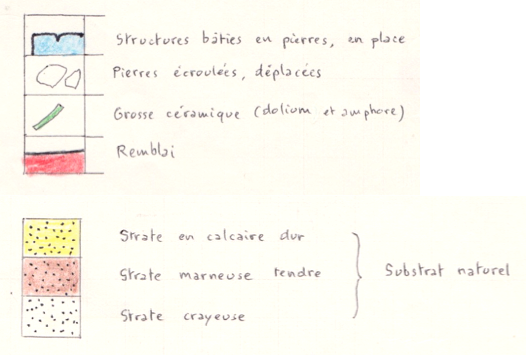 Structures bâties en pierres, en place
Pierres écroulées, déplacées
Grosse céramique (dolium et amphore)
Remblai
Strate en calcaire dur
Strate marneuse tendre
Substrat naturel
Strate crayeuse